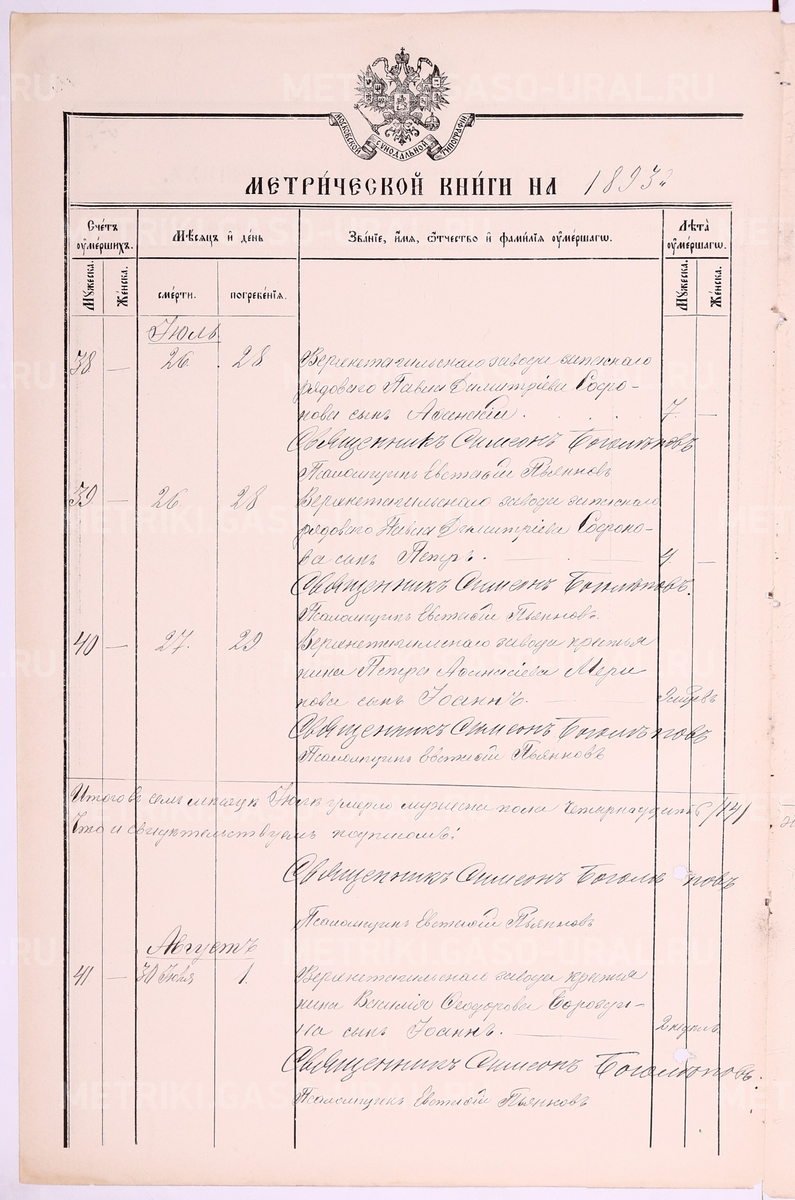 МОСКОВСКОЙ СѴНОДАЛЬНОЙ ТИПОГРАФІИ
МЕТРИ́ЧЕСКОЙ КНИ́ГИ НА 1893 г.
Сче́тъ ᲂу҆ме́ршихъ.
Мѣ́сяцъ и҆ де́нь
Зва́нїе, и҆́мя, ѻ҆́тчество и҆ фами́лїя ᲂу҆ме́ршагѡ.
Лѣта̀ ᲂу҆ме́ршагѡ.
Мꙋ́жеска.
Же́нска.
сме́рти.
погребе́нїя.
Мꙋ́жеска.
Же́нска.
Іюль
38 — 26 28 Верхнетагильскаго завода
рядоваго Павла Димитріева Софро-
нова сынъ 7 —
Священникъ Симеонъ Боголѣповъ
Псаломщикъ Евстафій Пьянковъ
39 — 26 28 Верхнетагильскаго завода
рядоваго Павла Димитріева Софроно-
ва сынъ Петръ. 4 —
Священникъ Симеонъ Боголѣповъ.
Псаломщикъ Евстафій Пьянковъ.
40 — 27. 29 Верхнетагильскаго завода крестья
нина Петра Аѳанасіева Мери
нова сынъ Іоаннъ.
Священникъ Симеонъ Боголѣповъ
Псаломщикъ Евстафій Пьянковъ
Итого въ семъ мѣсяцѣ Іюлѣ умерло мужеска пола четырнадцать /14/
Что и свидѣтельствуемъ подписомъ:
Священникъ Симеонъ Боголѣповъ
Псаломщикъ Евстафій Пьянковъ
Августъ
41 — 30 Іюля 1. Верхнетагильскаго завода крестья
нина Василія Ѳеодорова Бороди-
на сынъ Іоаннъ. 2 недѣль
Священникъ Симеонъ Боголѣповъ.
Псаломщикъ Евстафій Пьянковъ
METRIKI.GASO-URAL.RU